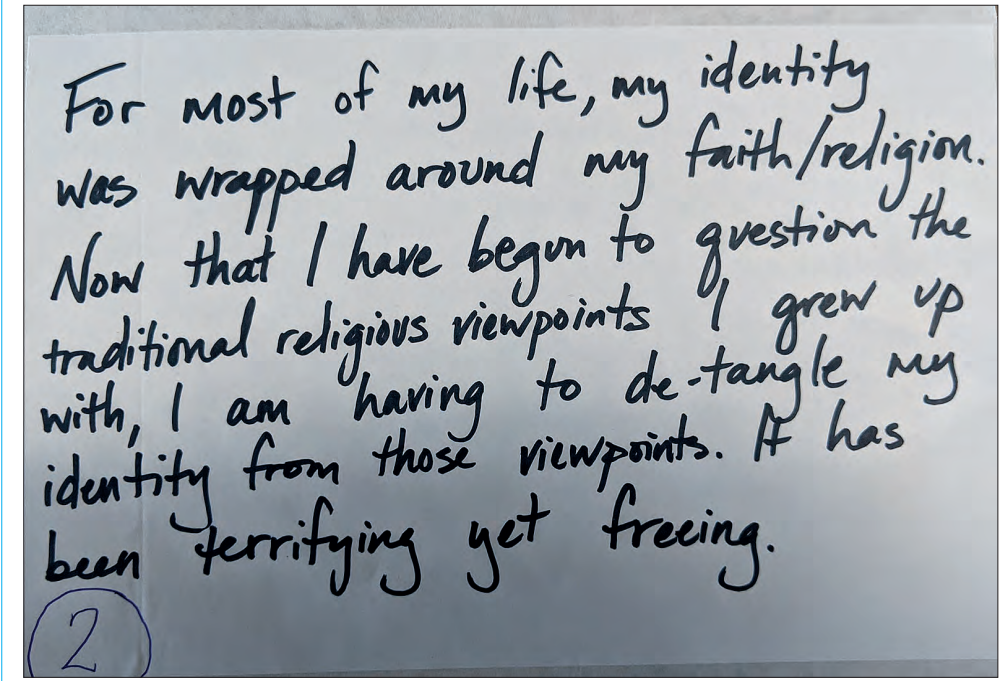 For most of my life, my identity
was wrapped around my faith/religion.
Now that I have begun to question the
traditional religious viewpoints I grew up
with, I am having to de-tangle my
identity from those viewpoints. It has
been terrifying yet freeing.
2